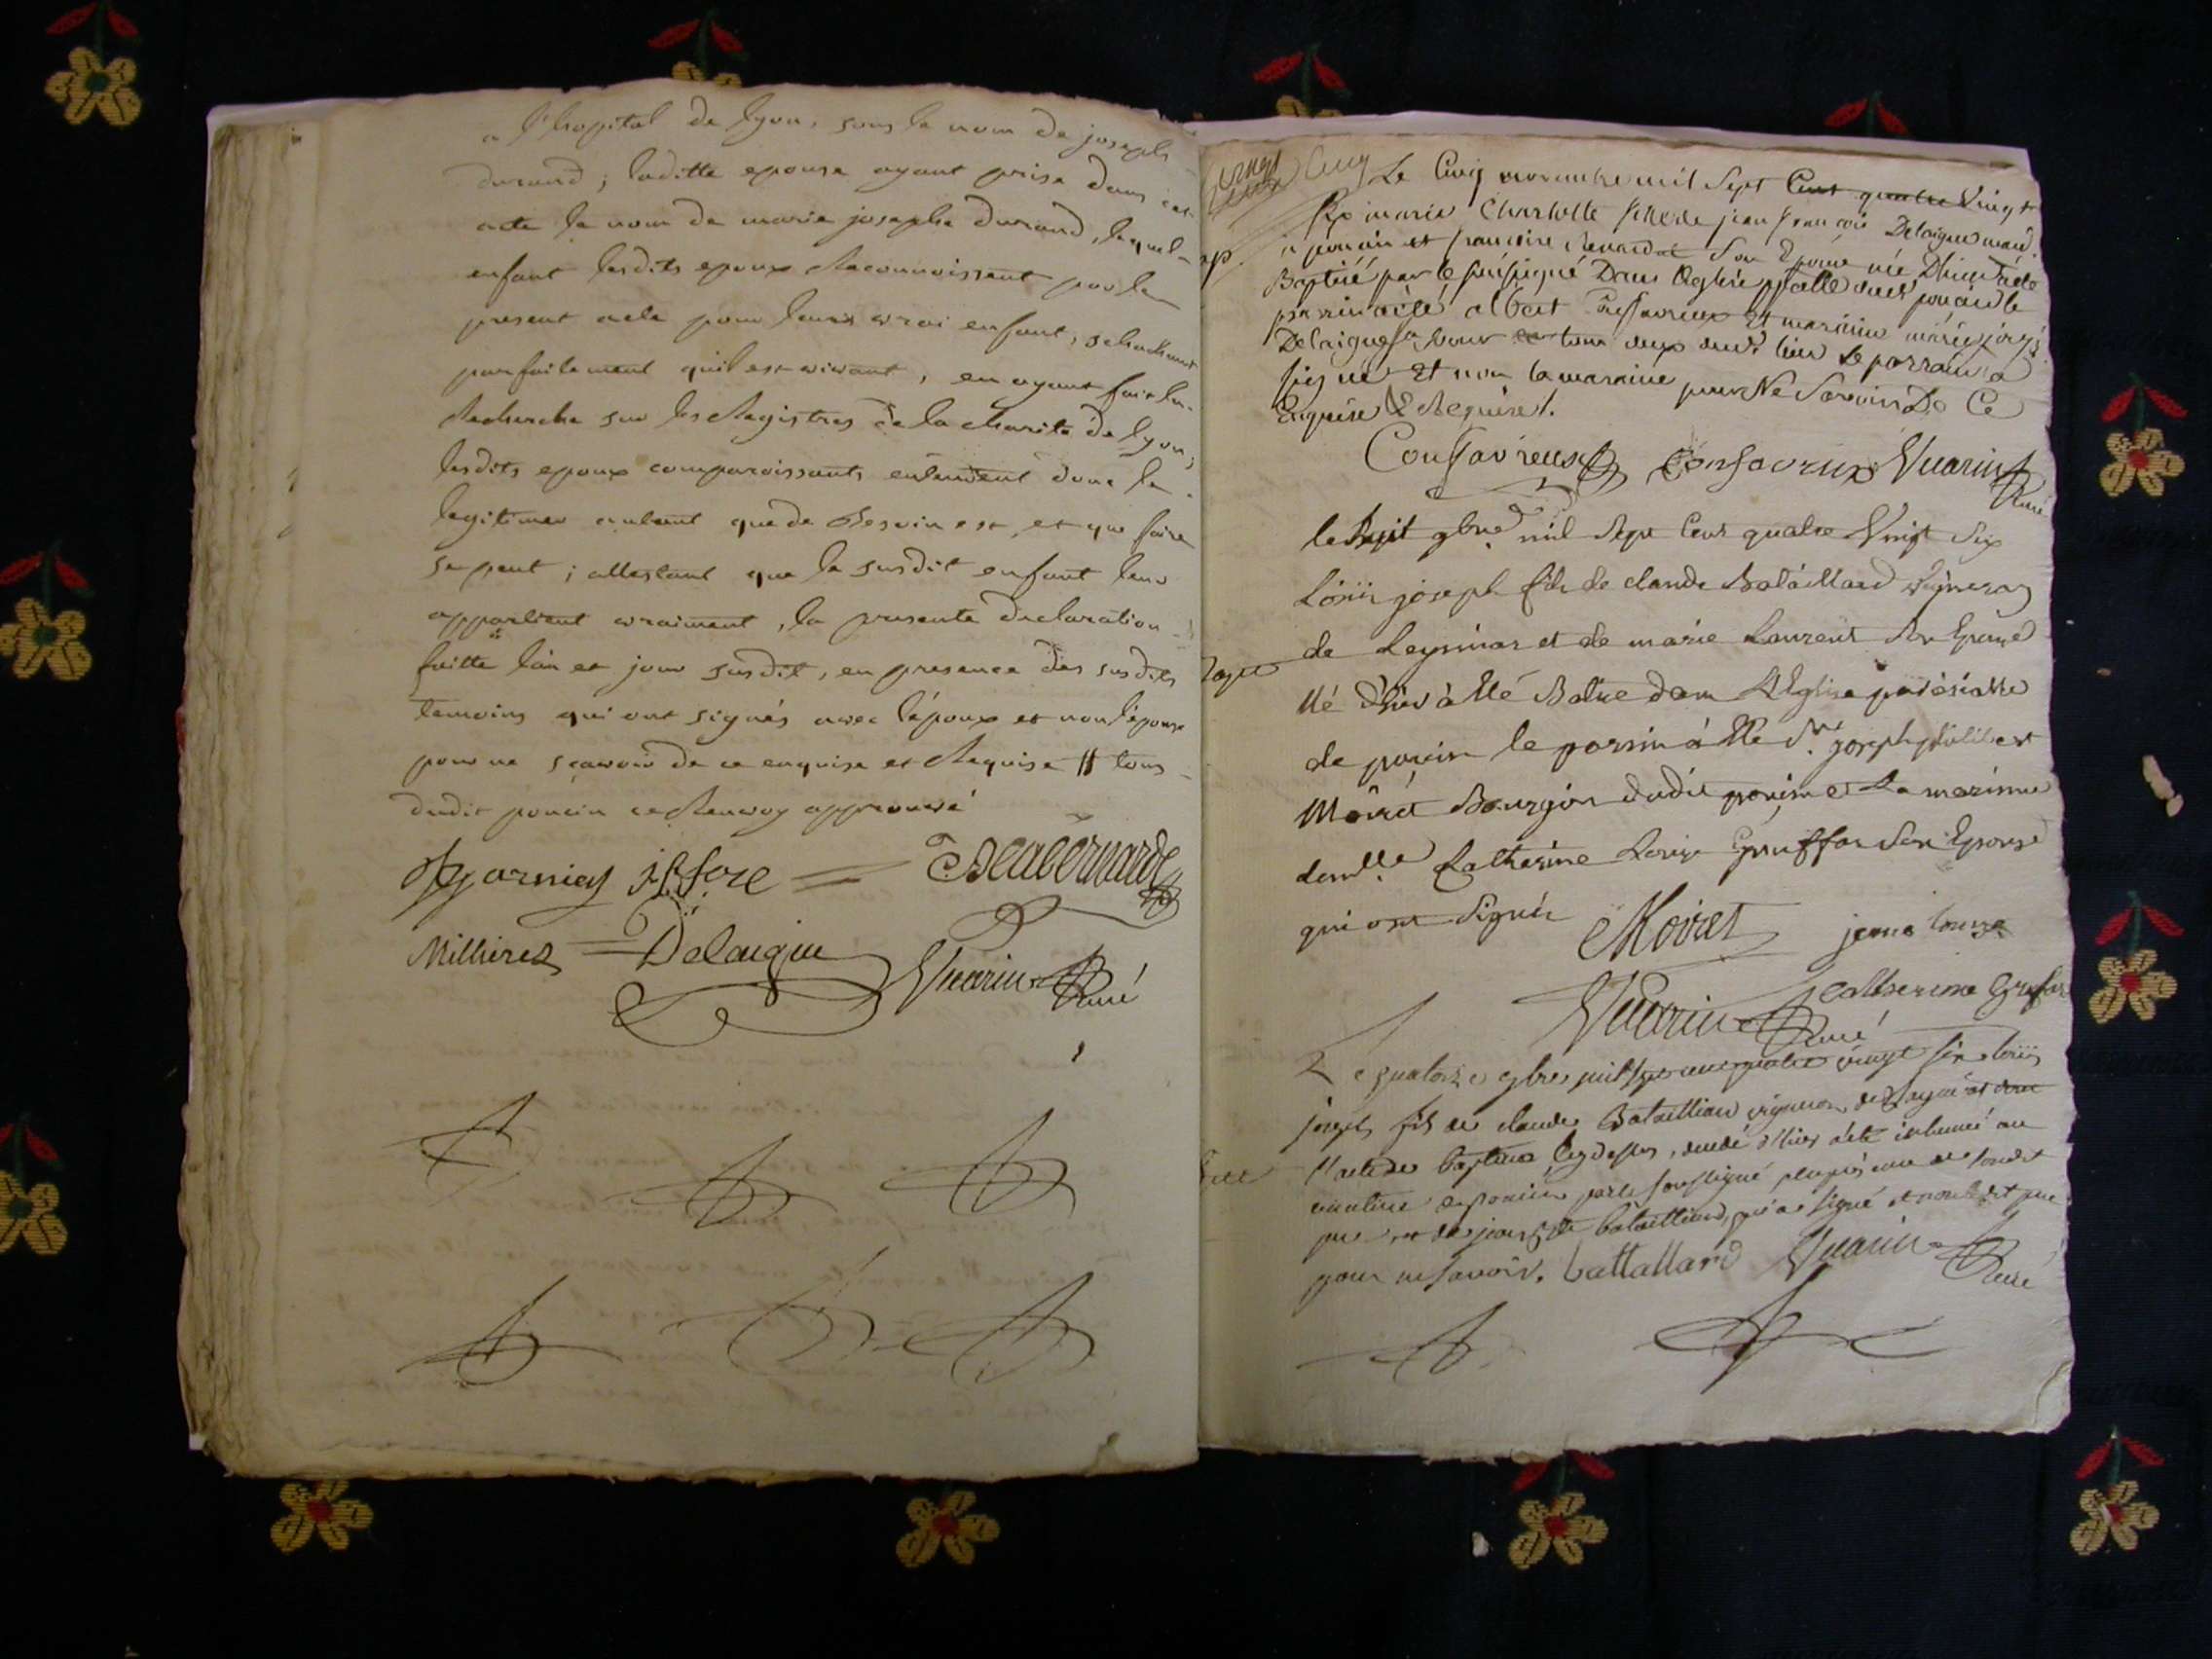 a l'hopital de lyon, sous le nom de joseph
durand; laditte epouse ayant prise dans cet
acte le nom de marie josephe durand, lequel
enfant lesdits epoux Reconnoissent par le
present acte pour leurs vrai enfant, schachant
parfaitement quil est vivant, en ayant fait la
Recherche sur les Registres de la charité de lyon;
lesdits epoux comparoissants entendent donc le
legitimer autant que de Besoin est, et que faire
se peut; attestant que le susdit enfant leur
appartient vraiment, la presente declaration
faitte l'an et jour susdit, en presence des susdits
temoins qui ont signés avec l'époux et non l'épouse
pour ne sçavoir de ce enquise et Requise # tous
dudit poncin ce Renvoy approuvé
garnier fore
Millieret Delaigue Vuarin Curé
Le Cinq novembre mil Sept Cent quatre Vingt
Six marie Charlotte fille de jean francois Delaigue
a poncin et francoise Son Epouse née D'hier a été
Baptisé par le soussigné Dans l'eglise dudt poncin le
parrain a été albert Confavreux Et marraine marie
Delaigue tous deux dudt lieu le parrain a
signé Et non la marraine pour Ne Savoir De Ce
Enquise & Requise.
Confavreux Confavreux Vuarin Curé
le huit 9bre mil Sept Cent quatre Vingt Six
Louis joseph fils de claude Bataillard Vigneron
de Leymiat et de marie Laurent Son Epouse
Né d'hier à été Batisé dans L'Eglise paroissialle
de poncin le parrin à été Sr. joseph philibert
Moiret Bourgois dudit poncin et La marinne
demlle. Catherine Louise Gruffas Son Epouse
qui ont Signés Moiret jeane louise
Vuarin Curé catherine
Le quatorze 9bre mil sept cent quatre vingt six louis
joseph fils de claude Bataillard vigneron de
l'acte de baptême cy dessus, decedé d'hier a été inhumé au
cimetiere de poncin par le soussigné presence de
pere et de joseph Bataillard, qui a signé et non
pour ne savoir. battallard Vuarin Curé